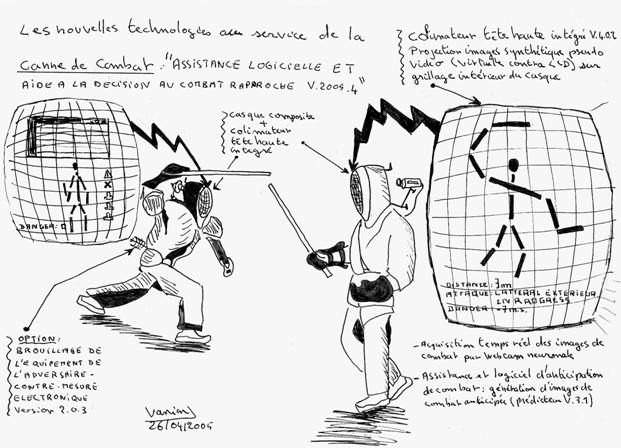 Les nouvelles technologies au service de la
Canne de Combat : "ASSISTANCE LOGICIELLE ET
AIDE A LA DECISION AU COMBAT RAPAROCHE V.2009.4"
Colimateur tête haute intégré V.4.02
Projection images synthétique pseudo
vidéo (virtuelle contra LSD) sur
grillage intérieur du casque
casque composite
+
colimateur
tête haute
intégré
DANGER: 0
DISTANCE: 3m
ATTAQUE: LATTERAL EXTERIEUR
IN PROGRESS
DANGER - 7 m.s.
OPTION:
BROUILLAGE DE
L'EQUIPEMENT DE
L'ADVERSAIRE-
CONTRE-MESURE
ELECTRONIQUE
Version 2.0.3
26/04/2009
- Acquisition temps réel des images de
combat par webcam neuronale
- Assistance et logiciel d'anticipation
de combat : génération d'images de
combat anticipée (prédicteur V.3.1)